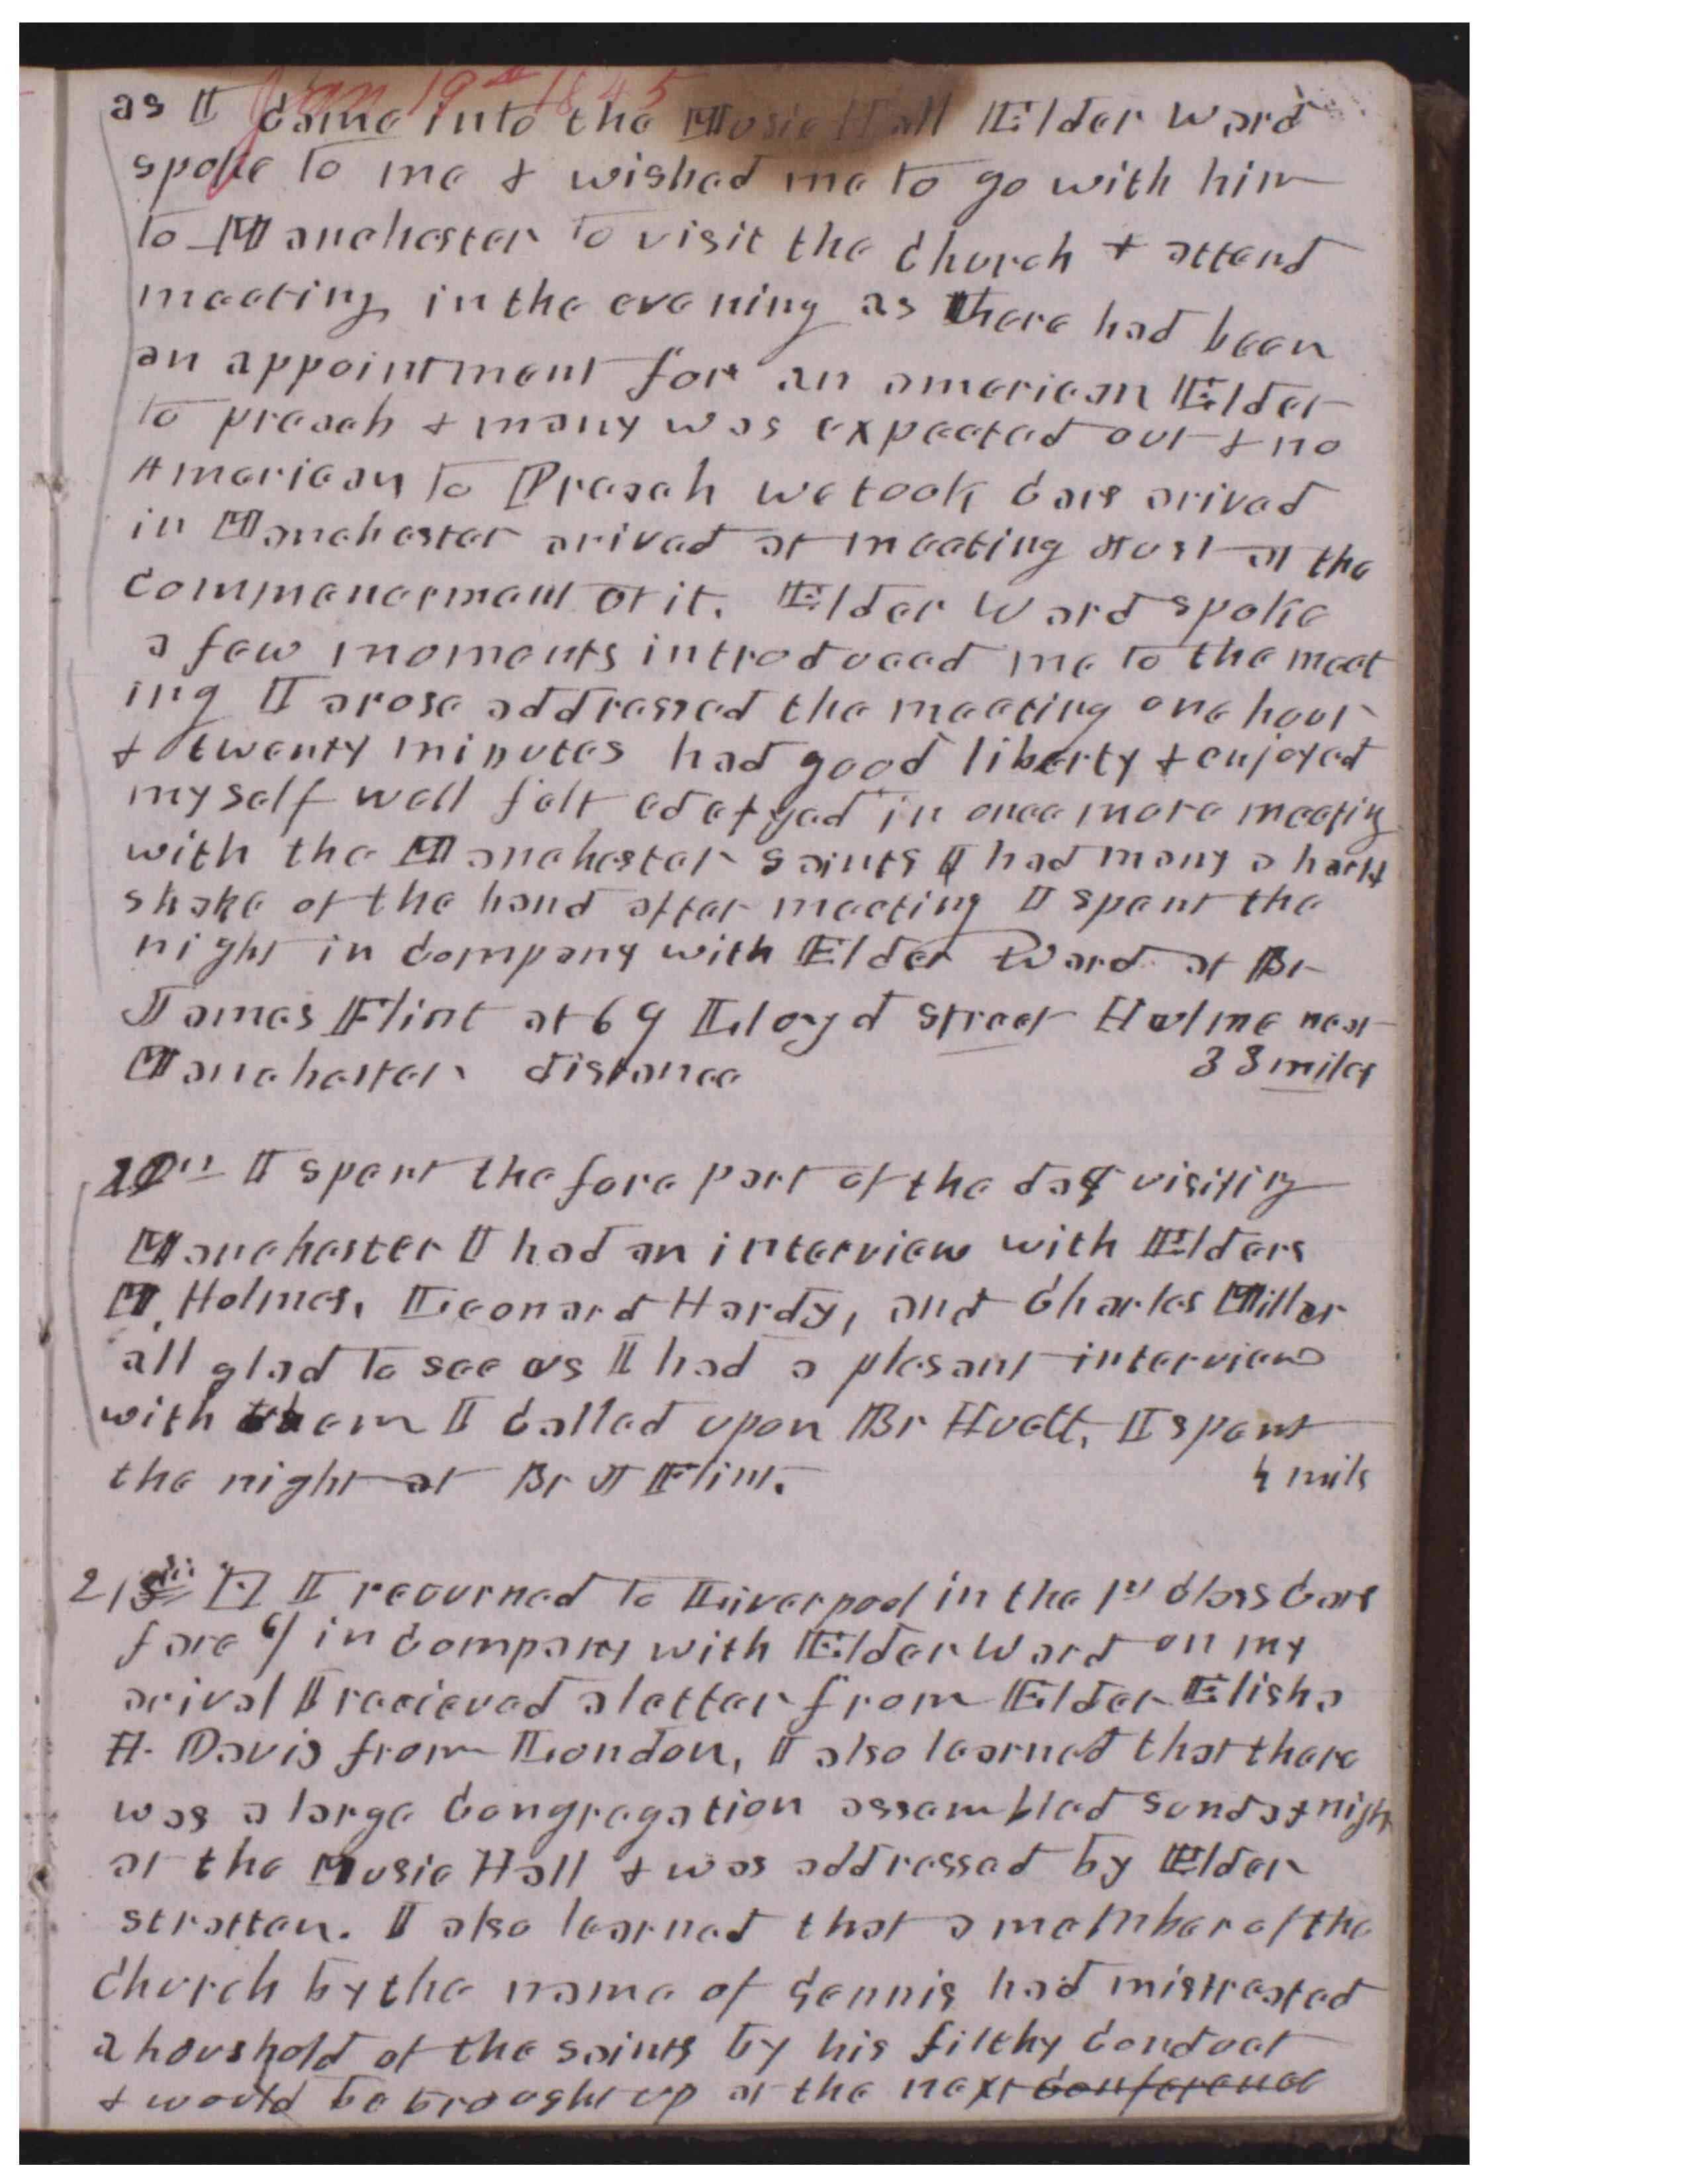 Jan 19th 1845
as I came into the Music Hall Elder Ward
spoke to me & wished me to go with him
to Manchester to visit the church & attend
meeting in the evening as there had been
an appointment for an american Elder
to preach & many was expected out & no
American to Preach we took cars arived
in Manchester arived at meeting Just at the
commencement of it. Elder Ward spoke
a few moments introduced me to the meet
ing I arose addressed the meeting one hour
& twenty minutes had good liberty & enjoyed
myself well felt edefyed in once more meeting
with the Manchester saints I had many a harty
shake of the hand after meeting I spent the
night in company with Elder Ward at Br
James Flint at 69 Lloyd street Hulme near
Manchester distance 33 miles
20th I spent the fore part of the day visiting
Manchester I had an interview with Elders
M, Holmes, Leonard Hardy, and Charles Miller
all glad to see us I had a plesant interview
with them I called upon Br Huett, I spent
the night at Br J Flint. 4 mils
21st I returned to Liverpool in the 1st class cars
fare 6/ in company with Elder Ward on my
arival I recieved a letter from Elder Elisha
H. Davis from London, I also learned that there
was a large congregation assembled sunday nigh
at the Music Hall & was addressed by Elder
stratten. I also learned that a member of the
church by the name of Gennis had mistreated
a houshold of the saints by his filthy conduct
& would be brought up at the next conference